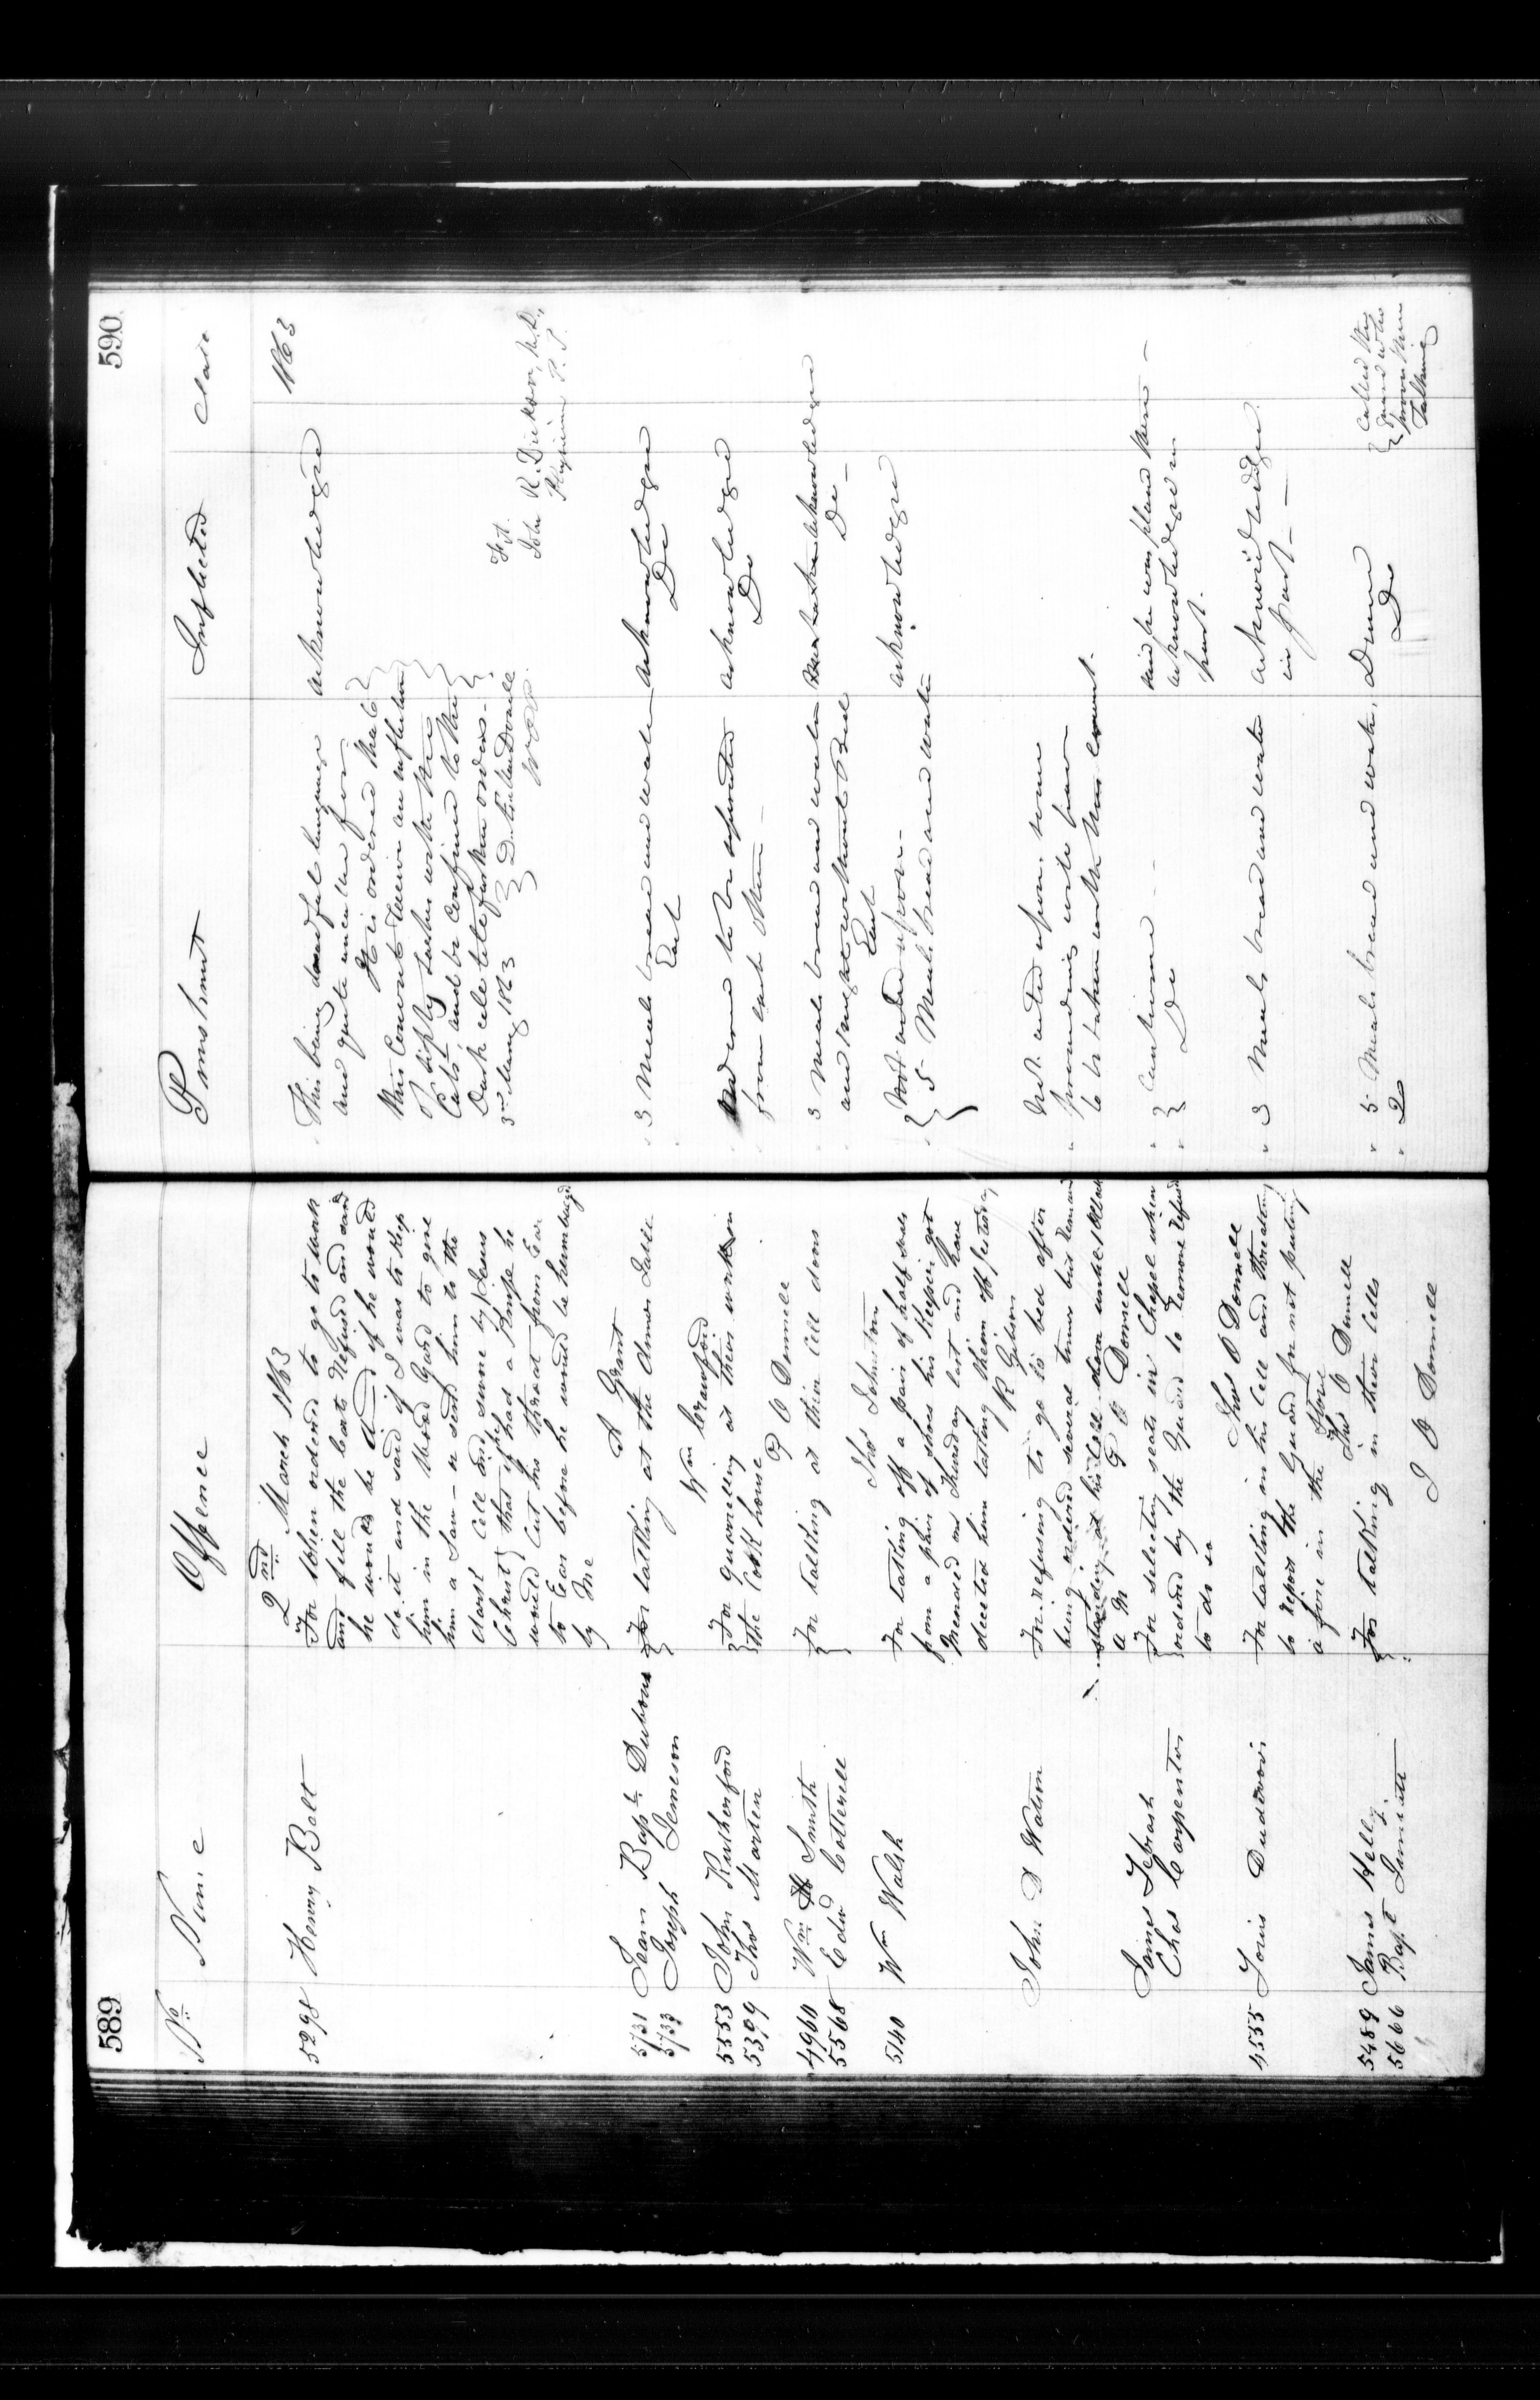 589
No. Name Offence
2nd March 1863
5298 Henry Bolt
For when ordered to go to work
and fill the boats Refused and said
he would be damd if he would
do it and said if I was to keep
him in the Wood Yard to give
him a Saw - or send him to the
dark Cell and swore by Jesus
Christ that if he had a Knife he
would Cut his throat from Ear
to Ear before he would be humbuged
by Me
A Grant
5731 Jean Bapt Dubous
5733 Joseph Jemeson
For talking at the dinner table
Wm Crawford
5553 John Rutherford
5399 Thos Marten
For quarrelling at their work in
the Cook house
P O Donnell
4960 Wm Smith
5568 Edwd Cotterell
For talking at their Cell doors
Thos Johnston
5140 Wm Walsh
For taking off a pair of half soles
from a pair of shoes his Keeper got
Mended on Thursday last and have
detected him taking them off yesterday
R Gibson
John D Watson
For refusing to go to bed after
being ordered several times but Remained
standing at his Cell door until 1 Oclock
A M
P O Donnell
James Lebrash
Chas Carpenter
For selecting seats in Chapel when
ordered by the Guard to Remove Refused
to do so
Thos O Donnell
4555 Louis Dudevoir
For talking in his Cell and threatening
to report the Guard for not puting
a fire in the Stove
Thos O Donnell
5489 James Kelly
5666 Bapt
For talking in their Cells
J O Donnell
590
Punishment Inflicted Date
1863
This being dreadful language
and quite uncalled for
It is ordered that
this Convict receive an infliction
of fifty lashes with the
Cats, and be confined to the
Dark cell till further orders -
3rd March 1863
acknowledged
Fit.
John R. Dickson, M.D.,
Physician P. P.
3 Meals bread and water
Each
acknowledged
Do
Ordered to be separated
from each other -
acknowledged
Do
3 Meals bread and water
and 1 night without Bed
Each
acknowledged
Do -
Not acted upon -
5 Meals bread and water
acknowledged
Not acted upon. some
proceedings will have
to be taken with this Convict.
Cautioned - -
Do
said he was placed there -
acknowledged in
part.
3 Meals bread and water
acknowledged
in part -
5 Meals bread and water.
2
Denied
Do
Called the
guard who
Talking